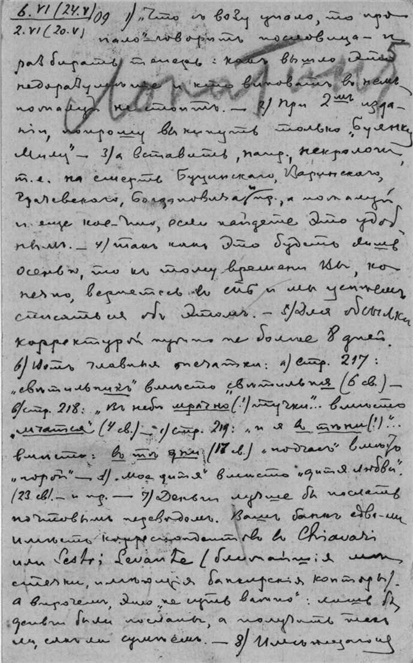 6.VI (24.V)/09 1) "Что съ возу упало, то про-
2.VI (20.V)
пало" говоритъ пословица – и
разбирать теперь: какъ вышло это
недоразумѣніе и кто виноватъ въ немъ
не стоитъ. – 2) При 2мъ изда-
ніи, попрошу выкинуть только
3) а вставить, напр., некрологи,
т.е. на смерть
Богдановича и пр., а пожалуй
и еще кое-что, если найдете это удоб-
нымъ. – 4) такъ какъ это будетъ лишь
осенью, то къ тому времени Вы, ко-
нечно, вернетесь въ СПб и мы успѣемъ
списаться объ этомъ. – 5) Для обсылки
корректурой нужно не болѣе 8 дней.
6) Вотъ главныя опечатки: а) стр. 217:
"свѣтильникъ" вмѣсто "свѣтильня" (6 св.) –
б) стр. 218: "въ небѣ мрачно (!) тучки"... вмѣсто
"мчатся" (4 св.) – с) стр. 219: "и я въ тѣни (!)...
вмѣсто: въ тѣ дни (17 св.) "подчасъ" вмѣсто
"порой" – d) "мое дитя" вмѣсто "дитя любви"
(23 св.) – и пр. – 7) Деньги лучше бы послать
почтовымъ переводомъ. Вашъ банкъ едва-ли
имѣетъ корреспондентовъ въ Chiavari
или Sestri Levante (ближайшія мѣс-
течки, имѣющія банкирскія конторы).
А впрочемъ, это "не суть важно": лишь бы
деньги были посланы, а получить
сумѣемъ. – 8)